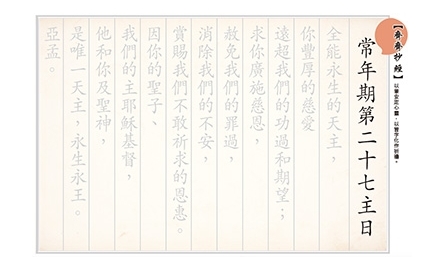 【齊齊抄經】
以筆安定心靈，以習字化作祈禱。
常年期第二十七主日
全能永生的天主，
你豐厚的慈愛
遠超我們的功過和期望；
求你廣施慈恩，
赦免我們的罪過，
消除我們的不安，
賞賜我們不敢祈求的恩惠。
因你的聖子、
我們的主耶穌基督，
他和你及聖神，
是唯一天主，永生永王。
亞孟。